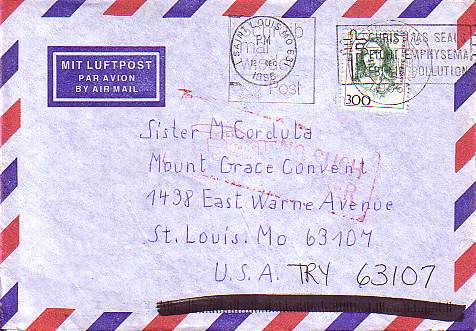 MIT LUFTPOST
PAR AVION
BY AIR MAIL
SAINT LOUIS MO 631
PM
DEC
Post
CHRISTMAS SEALS
FIGHT EMPHYSEMA
POLLUTION
300
Sister M. Cordula
Mount Grace Convent
1438 East Warne Avenue
St. Louis. Mo 63107
U.S.A. TRY 63107
NO SUCH